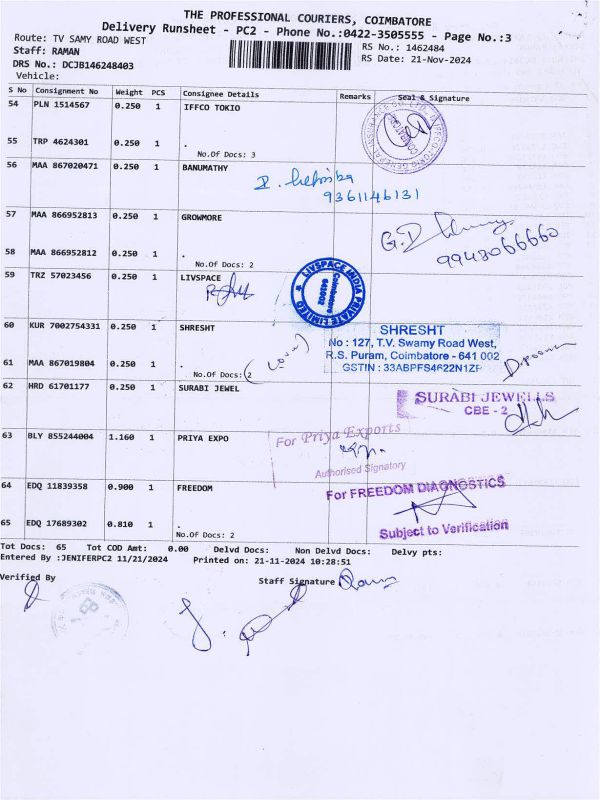 THE PROFESSIONAL COURIERS, COIMBATORE
Delivery Runsheet - PC2 - Phone No.:0422-3505555 - Page No.:3
Route: TV SAMY ROAD WEST
RS No.: 1462484
Staff: RAMAN
RS Date: 21-Nov-2024
DRS No.: DCJB146248403
Vehicle:
S No Consignment No Weight PCS Consignee Details Remarks Seal & Signature
54 PLN 1514567 0.250 1 IFFCO TOKIO
55 TRP 4624301 0.250 1 .
No.Of Docs: 3
56 MAA 867020471 0.250 1 BANUMATHY
9361146131
57 MAA 866952813 0.250 1 GROWMORE
58 MAA 866952812 0.250 1 .
9943066660
No.Of Docs: 2
59 TRZ 57023456 0.250 1 LIVSPACE
LIVSPACE INDIA PRIVATE LIMITED
Coimbatore
641002
60 KUR 7002754331 0.250 1 SHRESHT
SHRESHT
No : 127, T.V. Swamy Road West,
R.S. Puram, Coimbatore - 641 002
GSTIN : 33ABPFS4622N1ZP
61 MAA 867019804 0.250 1 .
No.Of Docs: 2
62 HRD 61701177 0.250 1 SURABI JEWEL
SURABI JEWELLS
CBE - 2
63 BLY 855244004 1.160 1 PRIYA EXPO
For Priya Exports
Authorised Signatory
64 EDQ 11839358 0.900 1 FREEDOM
For FREEDOM DIAGNOSTICS
65 EDQ 17689302 0.810 1 .
Subject to Verification
No.Of Docs: 2
Tot Docs: 65 Tot COD Amt: 0.00 Delvd Docs: Non Delvd Docs: Delvy pts:
Entered By :JENIFERPC2 11/21/2024 Printed on: 21-11-2024 10:28:51
Verified By Staff Signature